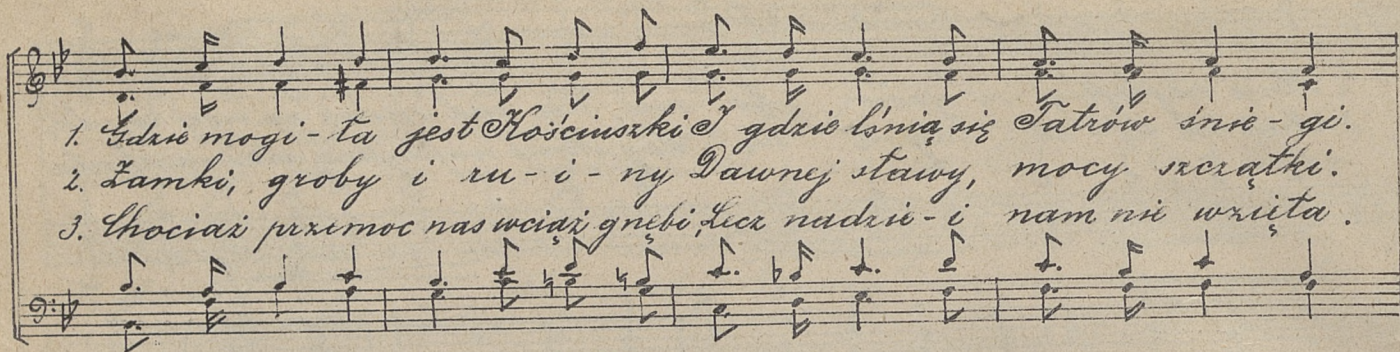 1. Gdzie mogi-ła jest Kościuszki I gdzie lśnią się Tatrów śnie-gi.
2. Zamki, groby i ru-i-ny Dawnej sławy, mocy szczątki.
3. Chociaż przemoc nas wciąż gnębi, Lecz nadzie-i nam nie wzięła.